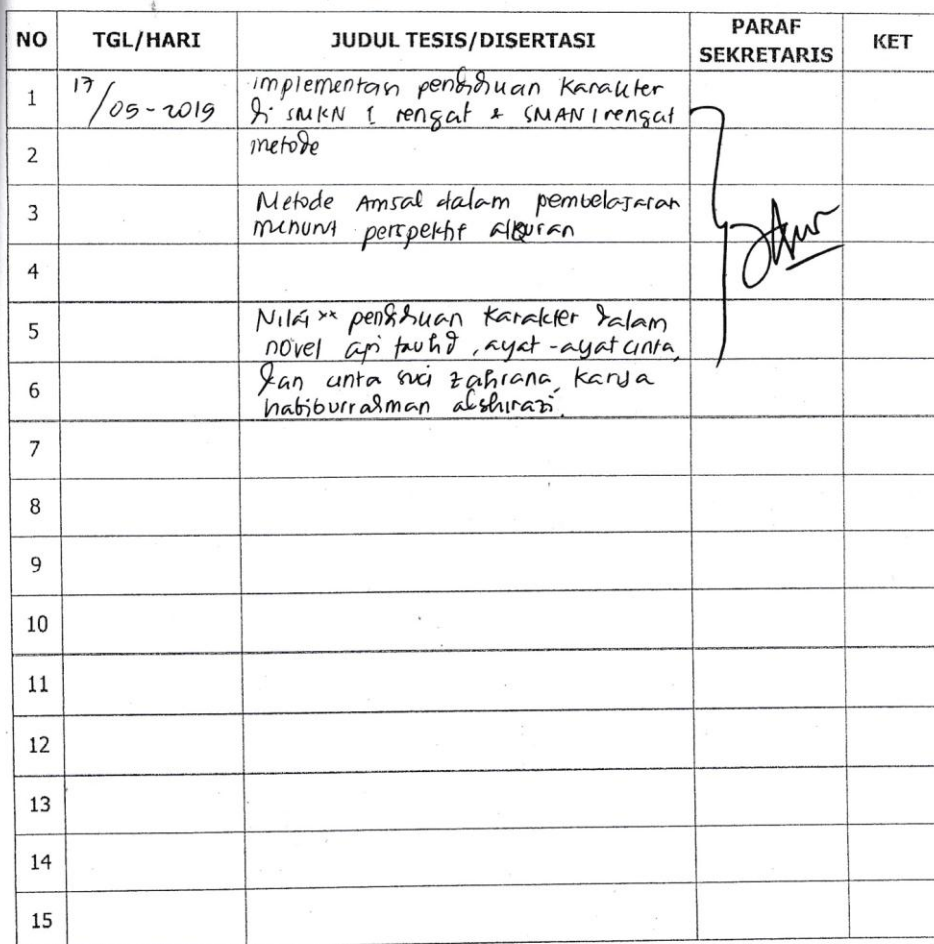 NO TGL/HARI JUDUL TESIS/DISERTASI PARAF SEKRETARIS KET
1 17/05-2019 implementasi pendidikan karakter
di SMKN 1 rengat & SMAN 1 rengat
2 metode
3 Metode Amsal dalam pembelajaran
menurut perpektif alquran
4
5 Nilai ** pendidikan karakter dalam
novel api tauhid, ayat-ayat cinta,
6 dan cinta suci zahrana, karya
habiburrahman alshirazi.
7
8
9
10
11
12
13
14
15